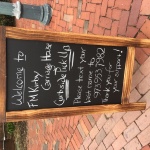 Welcome to
FM Kirby
Carriage House
Curbside Pick Up
Please text your
last name to
Thank you for
your support!